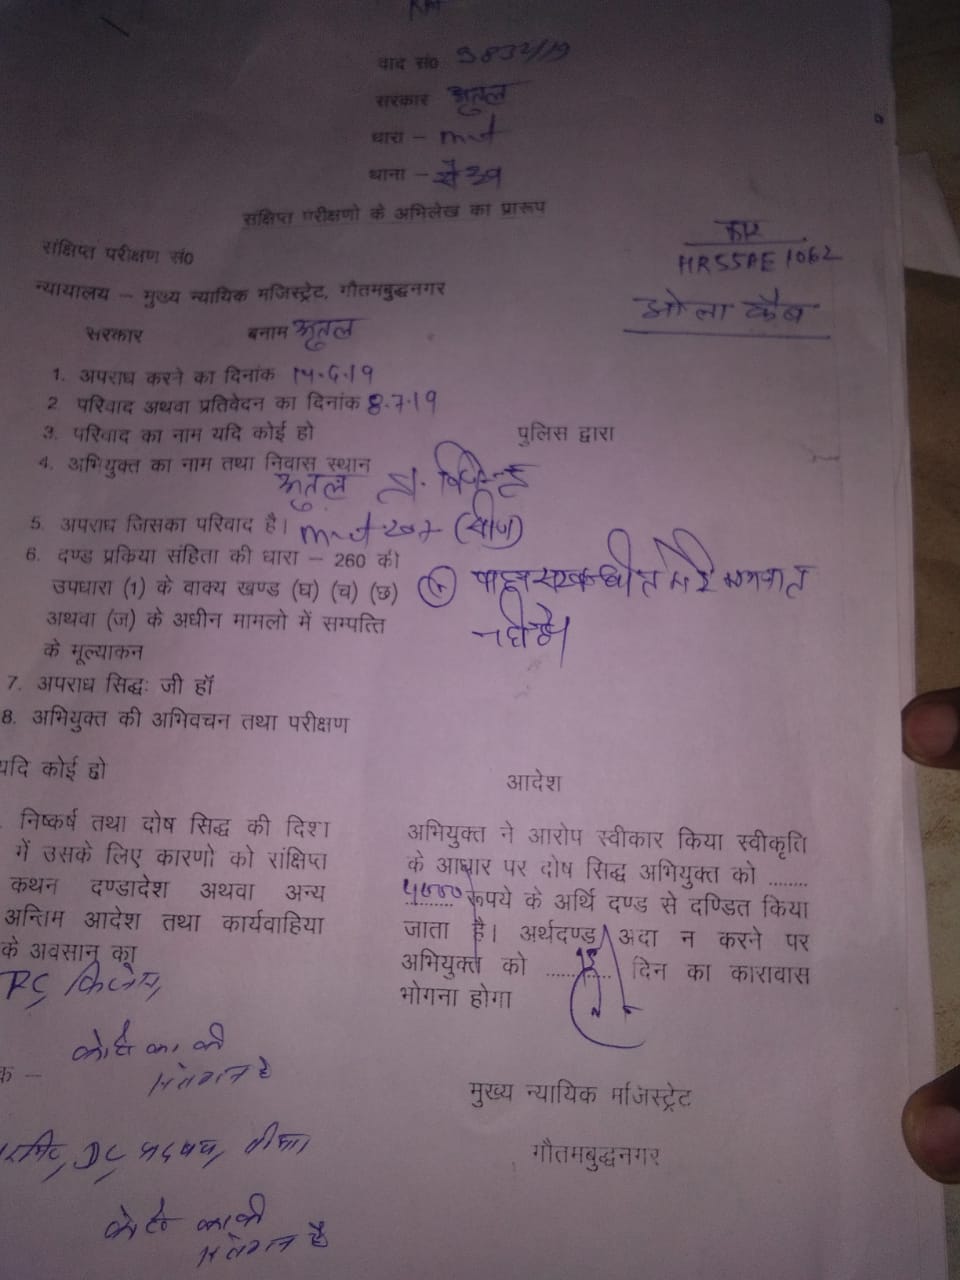 वाद सं० 3832/19
सरकार अतुल
धारा -
थाना -
संक्षिप्त परीक्षणो के अभिलेख का प्रारूप
संक्षिप्त परीक्षण सं0
कार
HR55AE1062
न्यायालय – मुख्य न्यायिक मजिस्ट्रेट, गौतमबुद्धनगर
ओला कैब
सरकार बनाम अतुल
1. अपराध करने का दिनांक 14.6.19
2 परिवाद अथवा प्रतिवेदन का दिनांक 8.7.19
3. परिवाद का नाम यदि कोई हो पुलिस द्वारा
4. अभियुक्त का नाम तथा निवास स्थान
अतुल
5. अपराध जिसका परिवाद है। (सीज)
6. दण्ड प्रकिया संहिता की धारा – 260 की
उपधारा (1) के वाक्य खण्ड (घ) (च) (छ)
अथवा (ज) के अधीन मामलो में सम्पत्ति
के मूल्याकन
नहीं है।
7. अपराध सिद्धः जी हॉ
8. अभियुक्त की अभिवचन तथा परीक्षण
यदि कोई हो
निष्कर्ष तथा दोष सिद्ध की दिशा
में उसके लिए कारणो को संक्षिप्त
कथन दण्डादेश अथवा अन्य
अन्तिम आदेश तथा कार्यवाहिया
के अवसान का
आदेश
अभियुक्त ने आरोप स्वीकार किया स्वीकृति
के आधार पर दोष सिद्ध अभियुक्त को ........
5000 रूपये के अर्थि दण्ड से दण्डित किया
जाता है। अर्थदण्ड अदा न करने पर
अभियुक्त को ............ दिन का कारावास
भोगना होगा
RC
संलग्न है
मुख्य न्यायिक मजिस्ट्रेट
गौतमबुद्धनगर
DL प्रदूषण, बीमा
संलग्न है